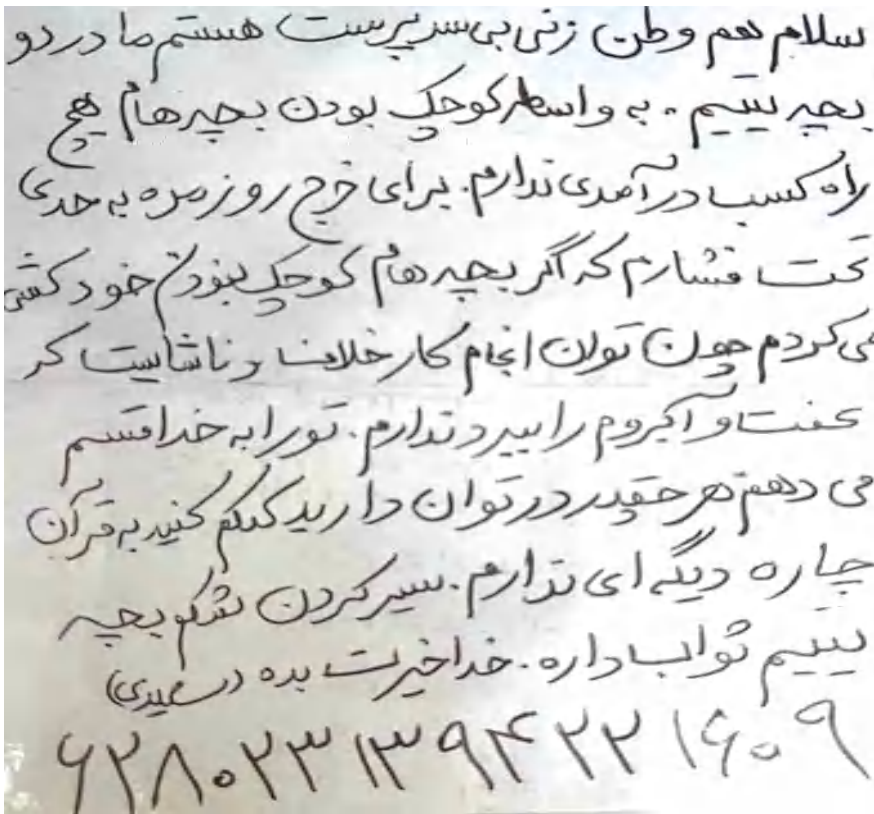 سلام هم وطن زنی بی سرپرست هستم مادر دو
بچه یتیم . به واسطه کوچک بودن بچه هام هیچ
راه کسب درآمدی ندارم . برای خرج روزمره به حدی
تحت فشارم که اگر بچه هام کوچک نبودن خودکشی
می کردم چون توان انجام کار خلاف و ناشایست که
عفت و آبروم را ببرد ندارم . تو را به خدا قسم
می دهم هر چقدر در توان دارید کمکم کنید به قرآن
چاره دیگه ای ندارم . سیر کردن شکم بچه
یتیم ثواب داره . خدا خیرت بده (سعیدی)
۶۲۸۰۲۳۱۳۹۴۲۲۱۶۰۹